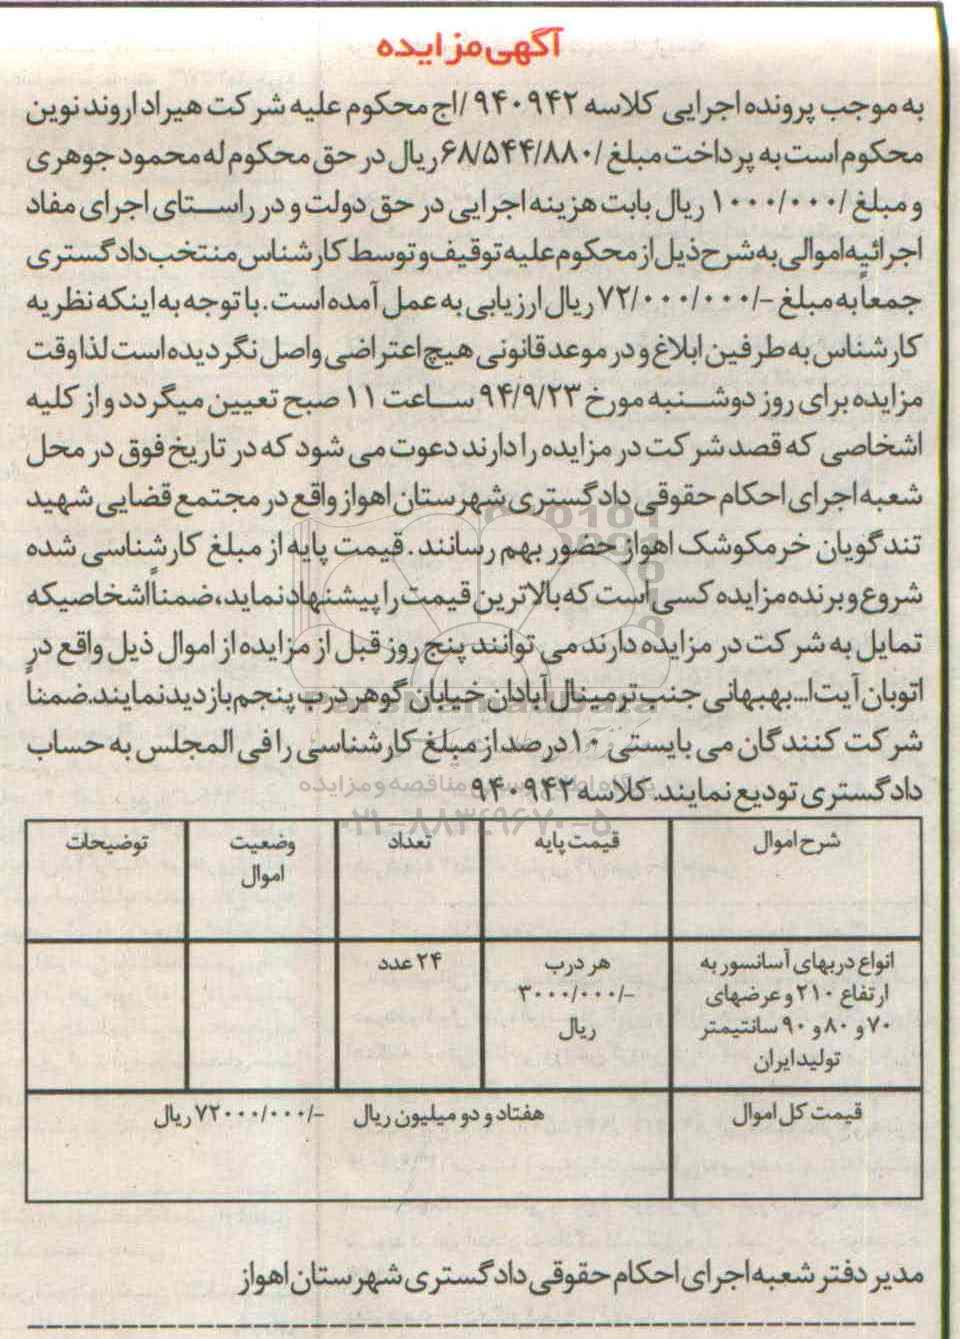 آگهی مزایده
به موجب پرونده اجرایی کلاسه ۹۴۰۹۴۲ /اج محکوم علیه شرکت هیراد اروند نوین
محکوم است به پرداخت مبلغ /۶۸/۵۴۴/۸۸۰ ریال در حق محکوم له محمود جوهری
و مبلغ /۱۰۰۰/۰۰۰ ریال بابت هزینه اجرایی در حق دولت و در راستای اجرای مفاد
اجرائیه اموالی به شرح ذیل از محکوم علیه توقیف و توسط کارشناس منتخب دادگستری
جمعاً به مبلغ -/۷۲/۰۰۰/۰۰۰ ریال ارزیابی به عمل آمده است. با توجه به اینکه نظریه
کارشناس به طرفین ابلاغ و در موعد قانونی هیچ اعتراضی واصل نگردیده است لذا وقت
مزایده برای روز دوشنبه مورخ ۹۴/۹/۲۳ ساعت ۱۱ صبح تعیین میگردد و از کلیه
اشخاصی که قصد شرکت در مزایده را دارند دعوت می شود که در تاریخ فوق در محل
شعبه اجرای احکام حقوقی دادگستری شهرستان اهواز واقع در مجتمع قضایی شهید
تندگویان خرمکوشک اهواز حضور بهم رسانند. قیمت پایه از مبلغ کارشناسی شده
شروع و برنده مزایده کسی است که بالاترین قیمت را پیشنهاد نماید، ضمناً اشخاصیکه
تمایل به شرکت در مزایده دارند می توانند پنج روز قبل از مزایده از اموال ذیل واقع در
اتوبان آیت ا... بهبهانی جنب ترمینال آبادان خیابان گوهر درب پنجم بازدید نمایند. ضمناً
شرکت کنندگان می بایستی ۱۰ درصد از مبلغ کارشناسی را فی المجلس به حساب
دادگستری تودیع نمایند. کلاسه ۹۴۰۹۴۲
مناقصه و مزایده
۰۲۱-۸۸۳۴۹۶۷۰-۵
شرح اموال قیمت پایه تعداد وضعیت اموال توضیحات
انواع دربهای آسانسور به هر درب ۲۴ عدد
ارتفاع ۲۱۰ و عرضهای -/۳۰۰۰/۰۰۰
۷۰ و ۸۰ و ۹۰ سانتیمتر ریال
تولید ایران
قیمت کل اموال هفتاد و دو میلیون ریال -/۷۲۰۰۰/۰۰۰ ریال
مدیر دفتر شعبه اجرای احکام حقوقی دادگستری شهرستان اهواز